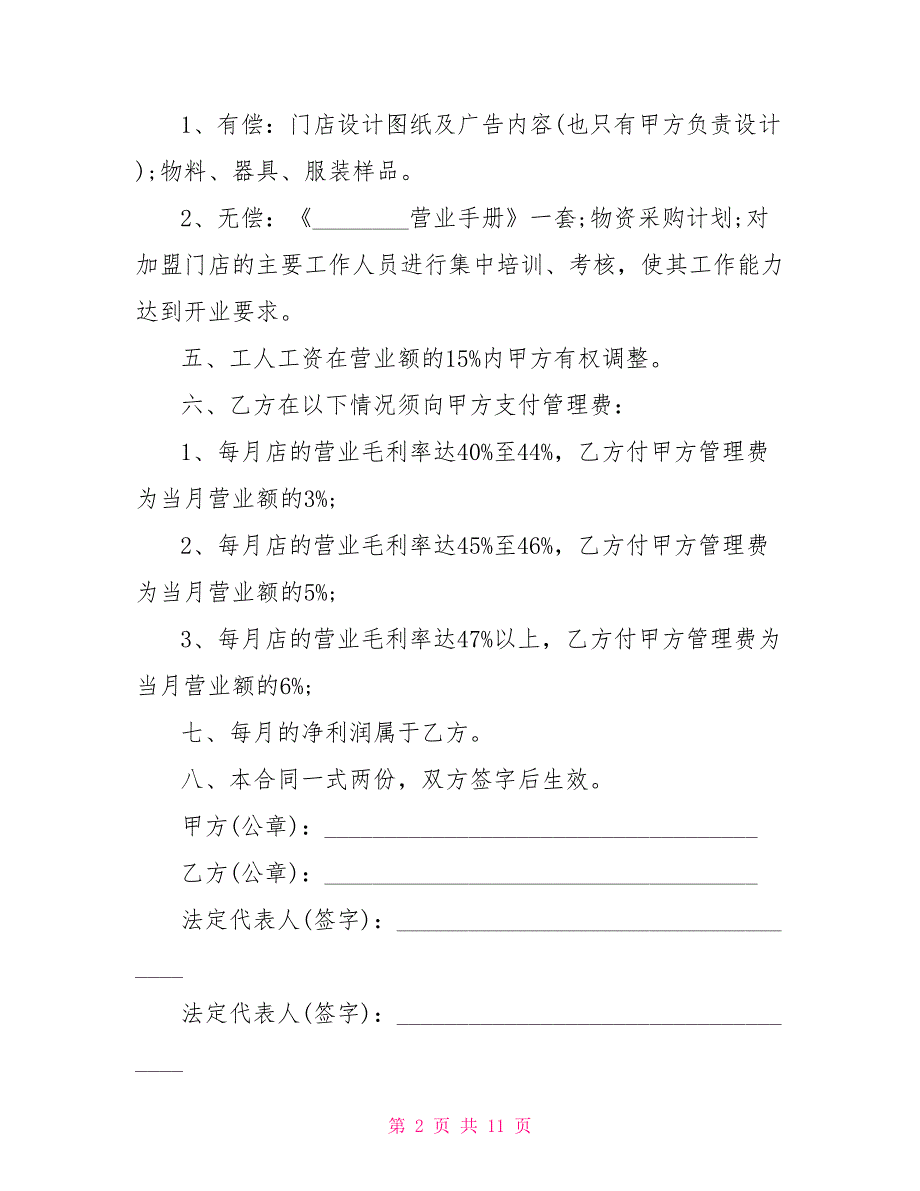 1、有偿：门店设计图纸及广告内容(也只有甲方负责设计
);物料、器具、服装样品。
2、无偿：《________营业手册》一套;物资采购计划;对
加盟门店的主要工作人员进行集中培训、考核，使其工作能力
达到开业要求。
五、工人工资在营业额的15%内甲方有权调整。
六、乙方在以下情况须向甲方支付管理费：
1、每月店的营业毛利率达40%至44%，乙方付甲方管理费
为当月营业额的3%;
2、每月店的营业毛利率达45%至46%，乙方付甲方管理费
为当月营业额的5%;
3、每月店的营业毛利率达47%以上，乙方付甲方管理费为
当月营业额的6%;
七、每月的净利润属于乙方。
八、本合同一式两份，双方签字后生效。
甲方(公章)：____________________________________
乙方(公章)：____________________________________
法定代表人(签字)：________________________________
____
法定代表人(签字)：________________________________
____
第 2 页 共 11 页